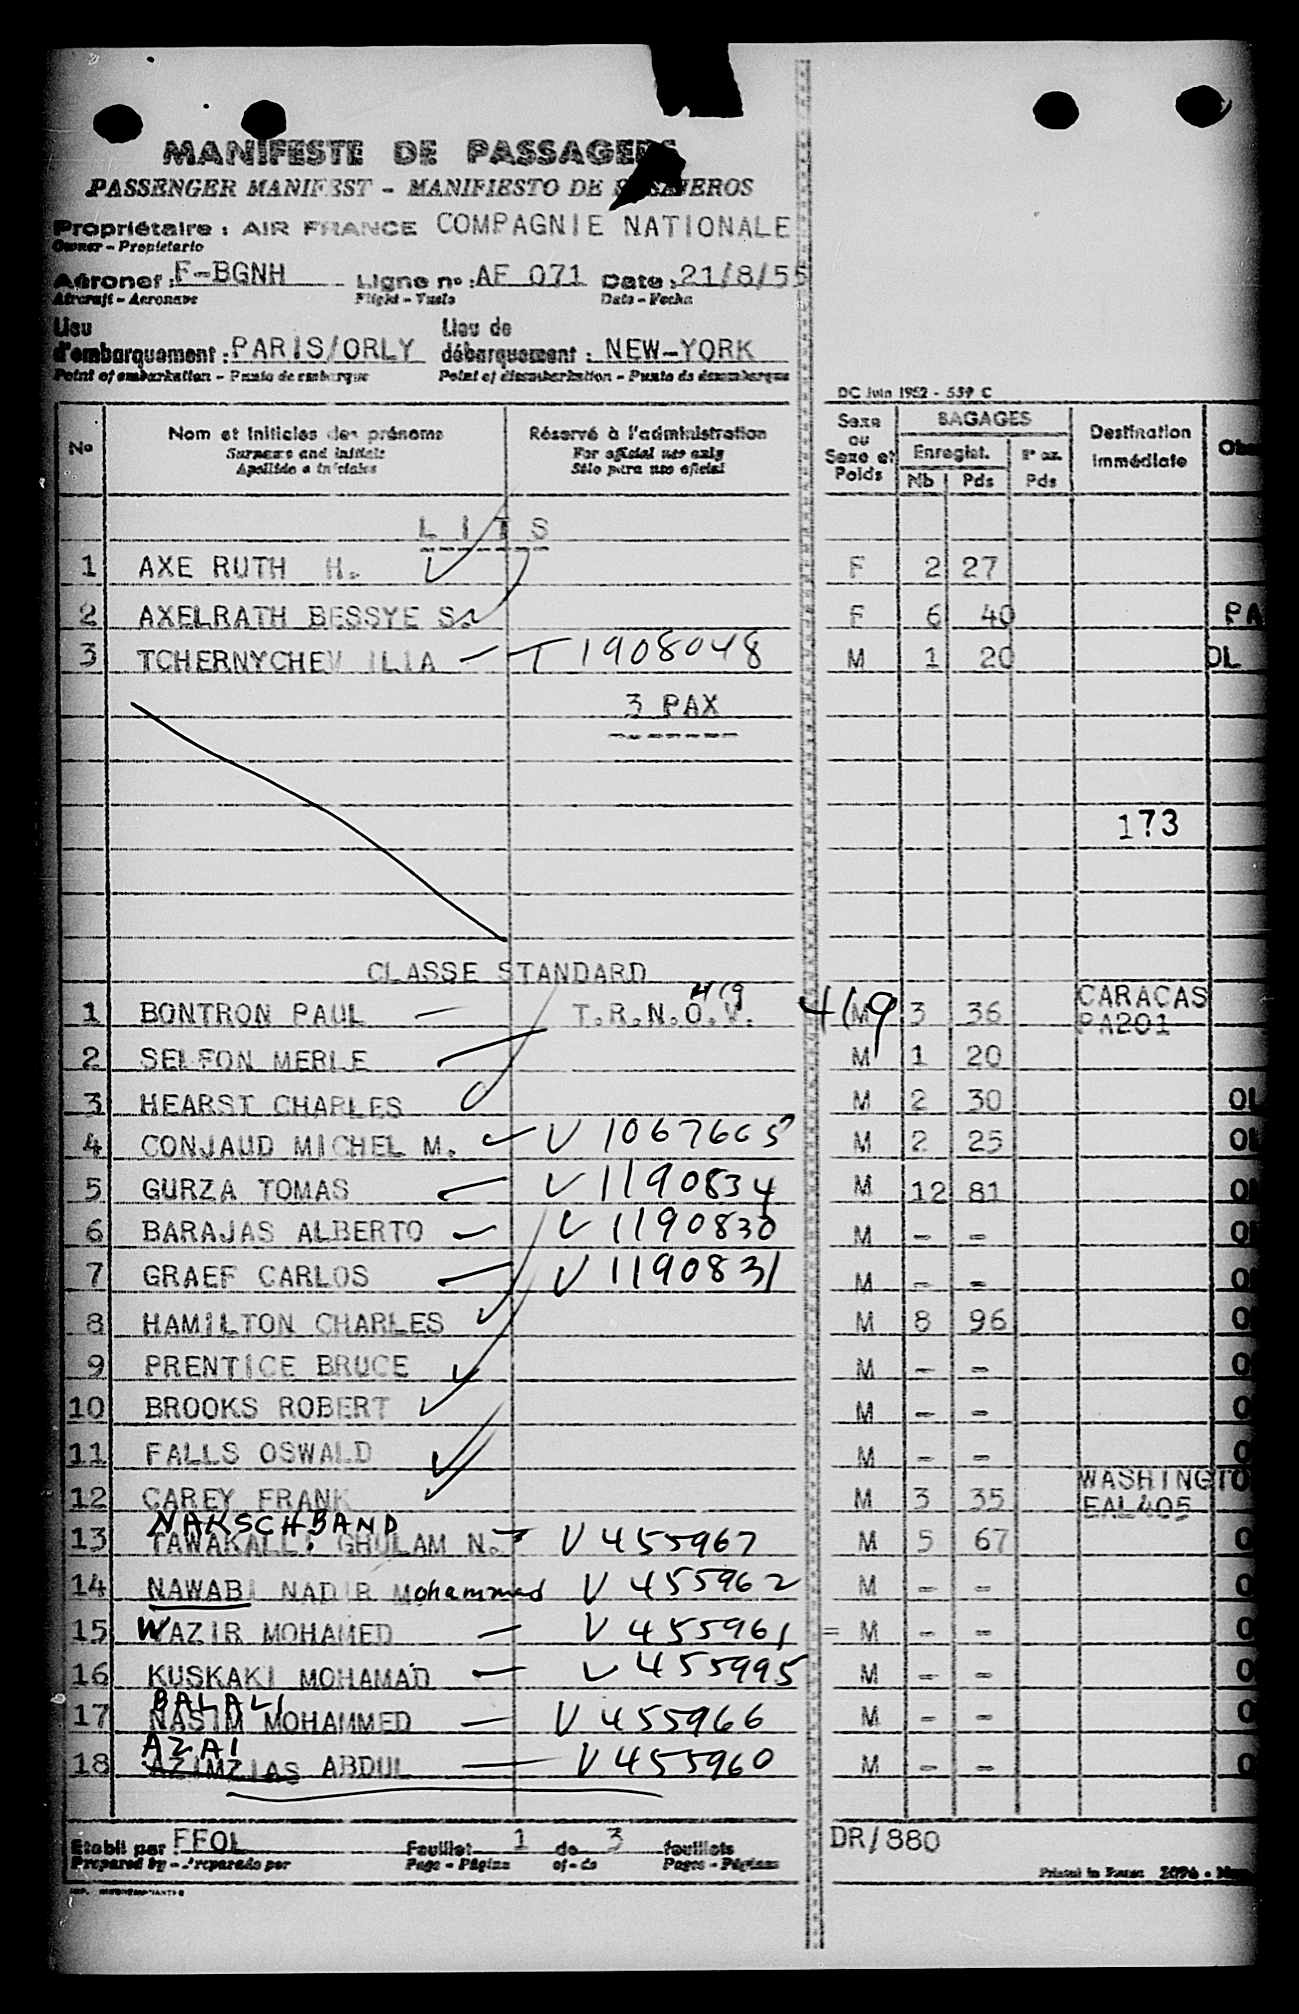 MANIFESTE DE PASSAGERS
PASSENGER MANIFEST - MANIFIESTO DE PASAJEROS
Propriétaire : AIR FRANCE COMPAGNIE NATIONALE
Owner - Propietario
Aéronef : F-BGNH Ligne no : AF 071 Date : 21/8/55
Aircraft - Aeronave Flight - Vuelo Date - Fecha
Lieu d'embarquement : PARIS/ORLY Lieu de débarquement : NEW-YORK
Point of embarkation - Punto de embarque Point of disembarkation - Punto de desembarque
DC Juin 1952 - 559 C
No Nom et initiales des prénoms Réservé à l'administration Sexe ou Sexe et Poids BAGAGES Destination immédiate
Surname and initials For official use only Enregist.
Apellido e iniciales Sólo para uso oficial Nb Pds Pds
LITS
1 AXE RUTH H. F 2 27
2 AXELRATH BESSYE S. F 6 40 PA
3 TCHERNYCHEV ILIA T 1908048 M 1 20 OL
3 PAX
173
CLASSE STANDARD
419
1 BONTRON PAUL T.R.N.O.V. 419 M 3 36 CARACAS PA201
2 SELFON MERLE M 1 20
3 HEARST CHARLES M 2 30 OL
4 CONJAUD MICHEL M. V 1067665 M 2 25 OL
5 GURZA TOMAS V 1190834 M 12 81 OL
6 BARAJAS ALBERTO V 1190830 M - - OL
7 GRAEF CARLOS V 1190831 M - - O
8 HAMILTON CHARLES M 8 96 O
9 PRENTICE BRUCE M - - O
10 BROOKS ROBERT M - - O
11 FALLS OSWALD M - - O
12 CAREY FRANK M 3 35 WASHINGTO EAL405
NAKSCHBAND
13 TAWAKALLI GHULAM N. V 455967 M 5 67 O
14 NAWABI NADIR Mohammed V 455962 M - - O
15 WAZIR MOHAMED V 455961 = M - - O
16 KUSKAKI MOHAMAD V 455995 M - - O
BALALI
17 NASIM MOHAMMED V 455966 M - - O
AZAI
18 AZIMZIAS ABDUL V 455960 M - - O
Etabli par FFOL Feuillet 1 de 3 feuillets DR/880
Prepared by - Preparado por Page - Página of - de Pages - Páginas
Printed in France